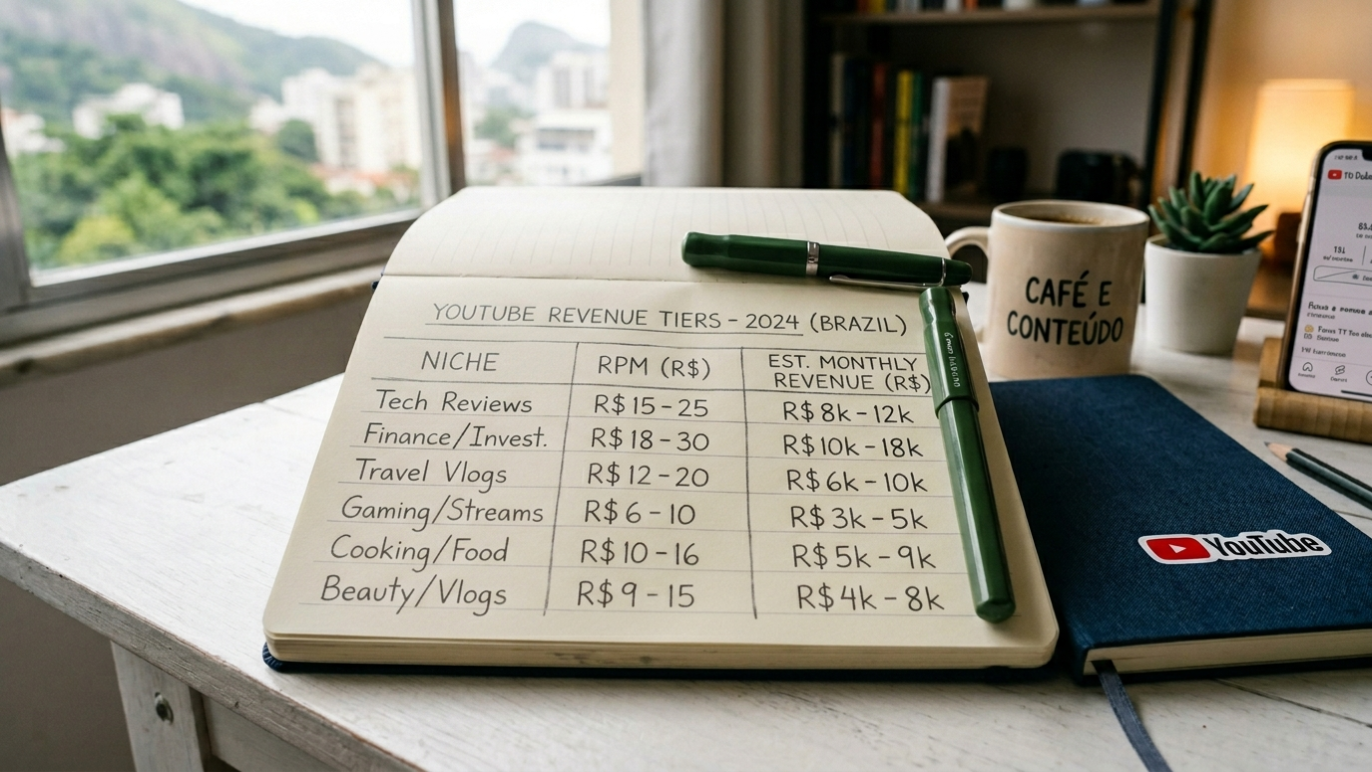 YOUTUBE REVENUE TIERS - 2024 (BRAZIL)
NICHE RPM (R$) EST. MONTHLY REVENUE (R$)
Tech Reviews R$15-25 R$8k-12k
Finance/Invest. R$18-30 R$10k-18k
Travel Vlogs R$12-20 R$6k-10k
Gaming/Streams R$6-10 R$3k-5k
Cooking/Food R$10-16 R$5k-9k
Beauty/Vlogs R$9-15 R$4k-8k
CAFÉ E
CONTEÚDO
YouTube